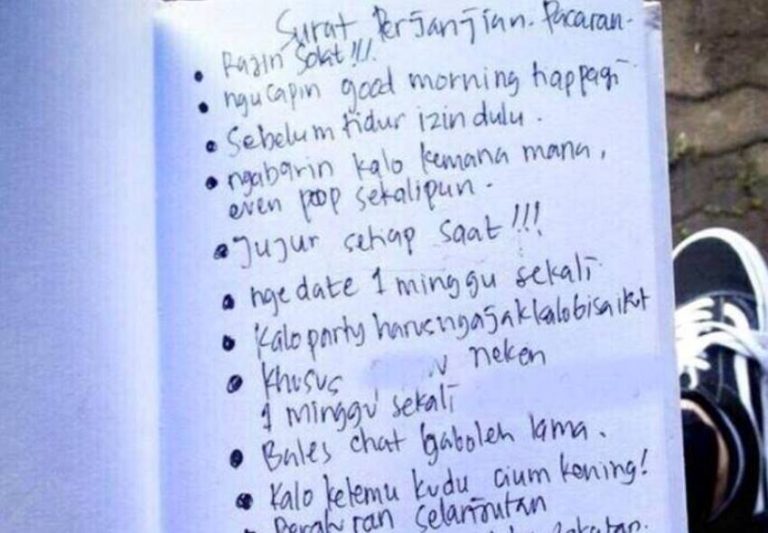 Surat Perjanjian Pacaran.
• Rajin Solat!!!
• ngucapin good morning tiap pagi
• Sebelum tidur izin dulu.
• ngabarin kalo kemana mana,
even poop sekalipun.
• Jujur setiap saat!!!
• ngedate 1 minggu sekali
• Kalo party harus ngajak kalo bisa ikut
• Khusus neken
1 minggu sekali
• Bales chat gaboleh lama.
• Kalo ketemu kudu cium kening!
• Peraturan selanjutan